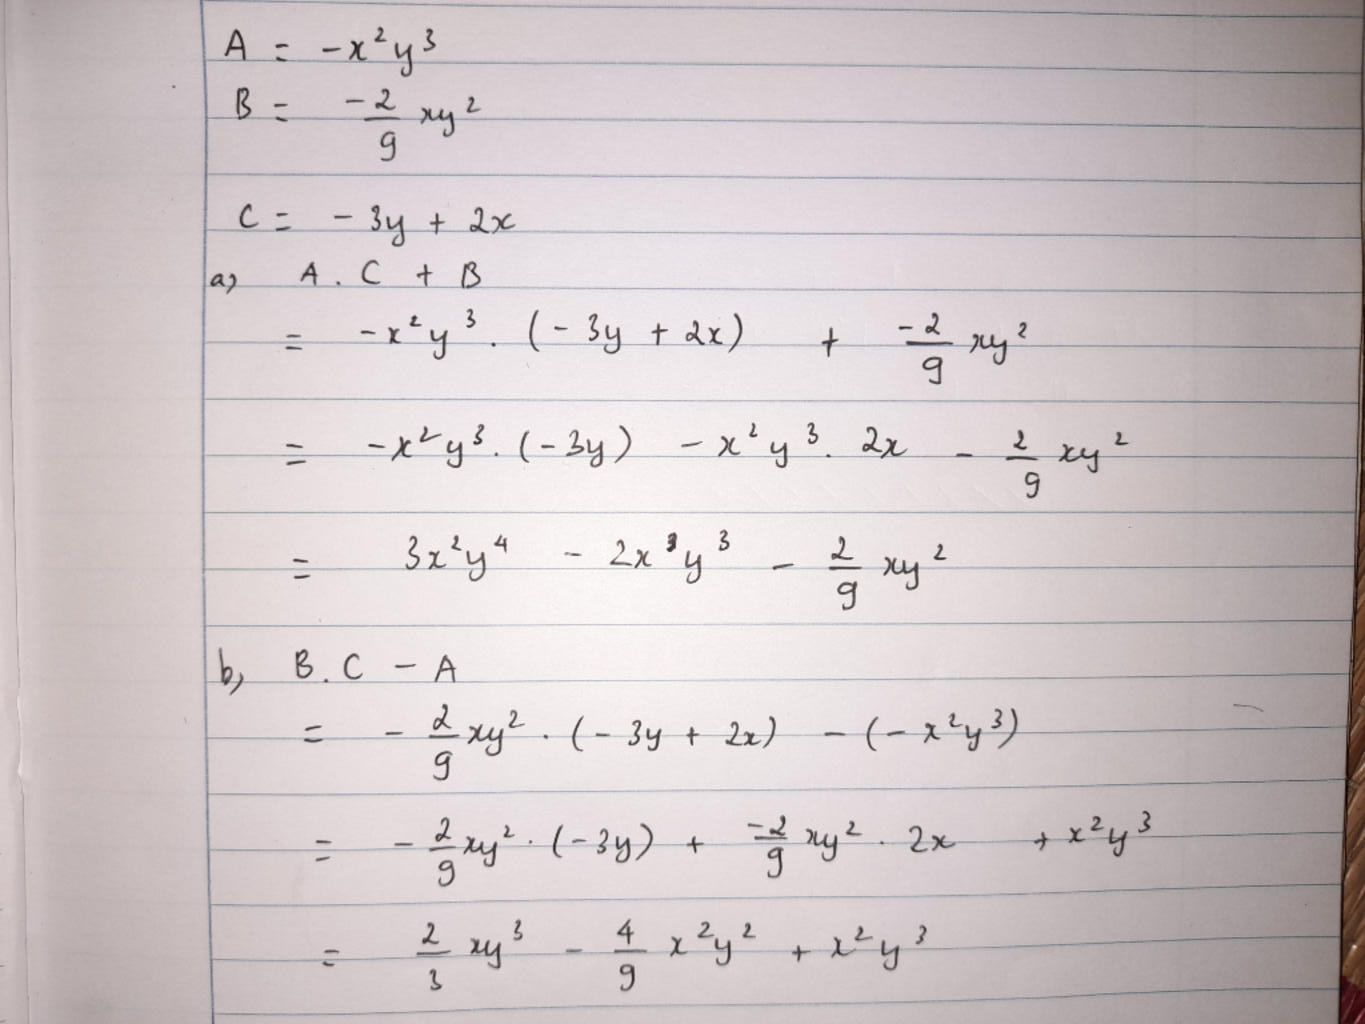 A = -x²y³
B = -2/9 xy²
C = - 3y + 2x
a, A . C + B
= -x²y³ . (- 3y + 2x) + -2/9 xy²
= -x²y³ . (-3y) - x²y³ . 2x - 2/9 xy²
= 3x²y⁴ - 2x³y³ - 2/9 xy²
b, B . C - A
= - 2/9 xy² . (- 3y + 2x) - (- x²y³)
= - 2/9 xy² . (-3y) + -2/9 xy² . 2x + x²y³
= 2/3 xy³ - 4/9 x²y² + x²y³